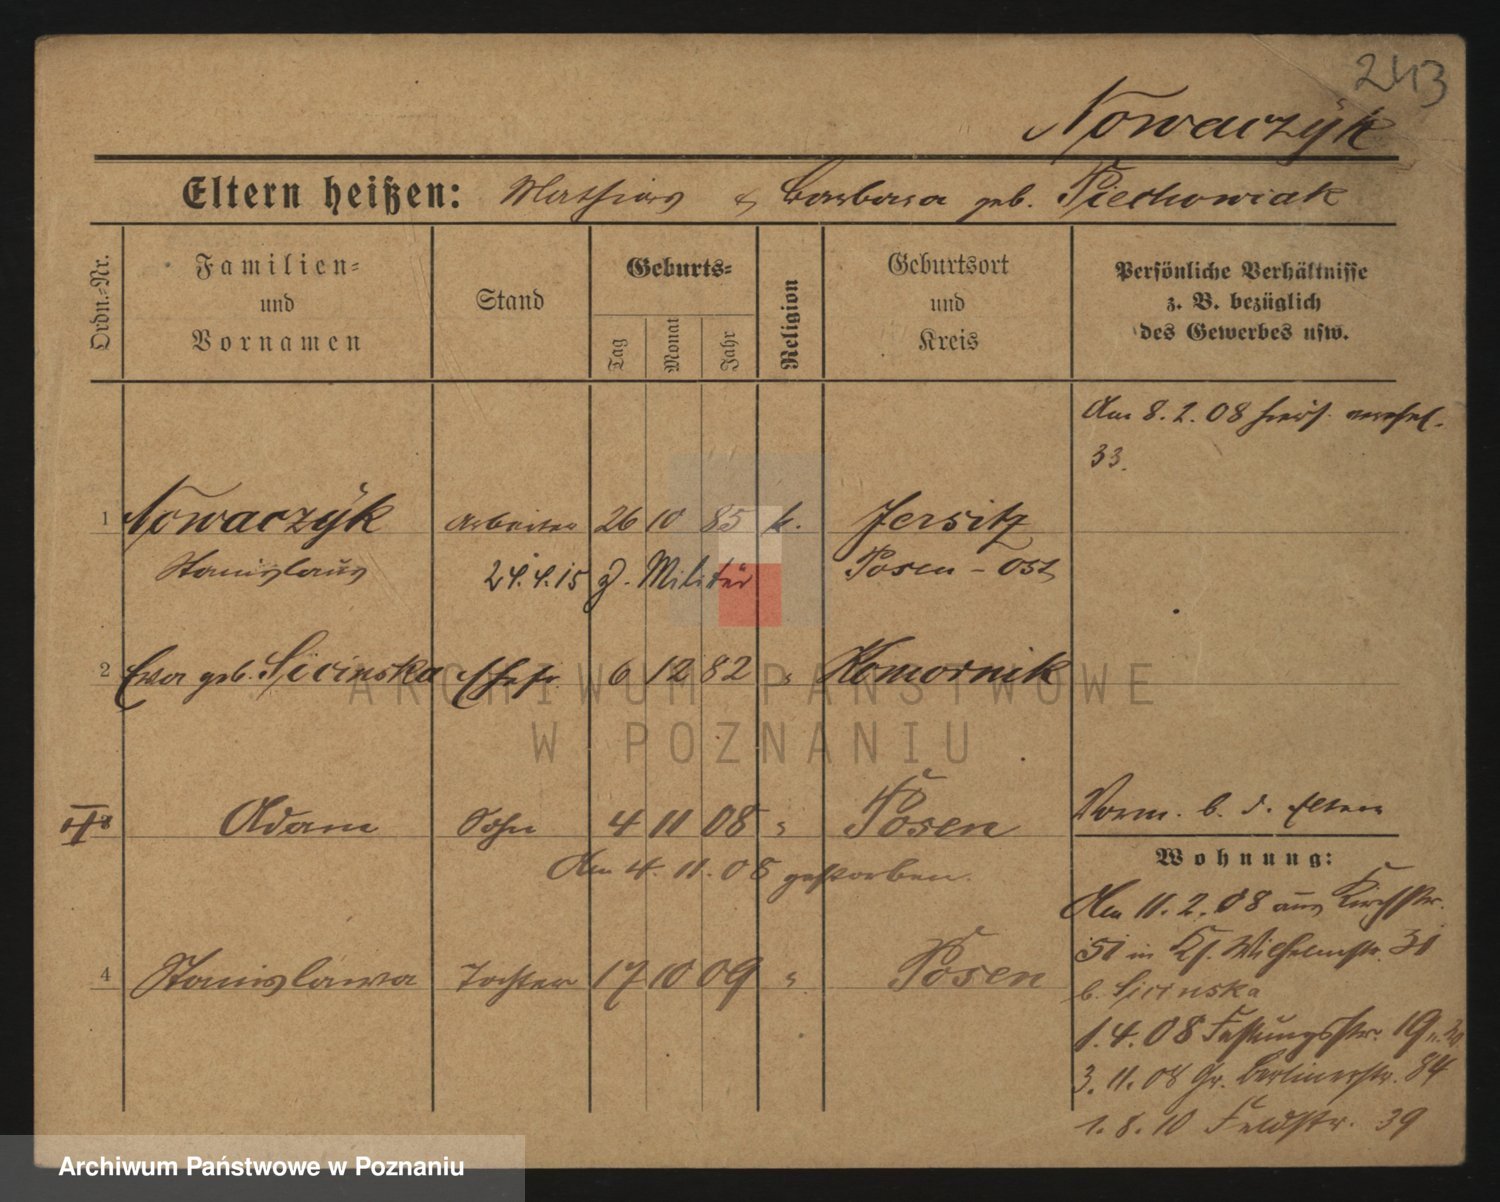 243
Nowaczyk
Eltern heißen: Mathias & Barbara geb. Piechowiak
Ordn.-Nr.
Familien-
und
Vornamen
Stand
Geburts-
Tag
Monat
Jahr
Religion
Geburtsort
und
Kreis
Persönliche Verhältnisse
z. B. bezüglich
des Gewerbes usw.
Am 8.2.08 hiers. verehel.
33.
1 Nowaczyk Arbeiter 26 10 85 k. Jersitz
Stanislaus 24.4.15 z. Militär Posen-Ost
2 Ewa geb. Sicinska Ehefr. 6 12 82 " Komornik
Adam Sohn 4 11 08 " Posen
Am 4.11.08 gestorben.
4 Stanislawa Tochter 17 10 09 " Posen
Vorm. b. d. Eltern
Wohnung:
Am 11.2.08 aus Kirchstr.
51 in Kl. Wilhelmstr. 31
b. Sicinska
1.4.08 Festungsstr. 19
3.11.08 Gr. Berlinerstr. 84
1.8.10 Feldstr. 39
ARCHIWUM PAŃSTWOWE
W POZNANIU
Archiwum Państwowe w Poznaniu